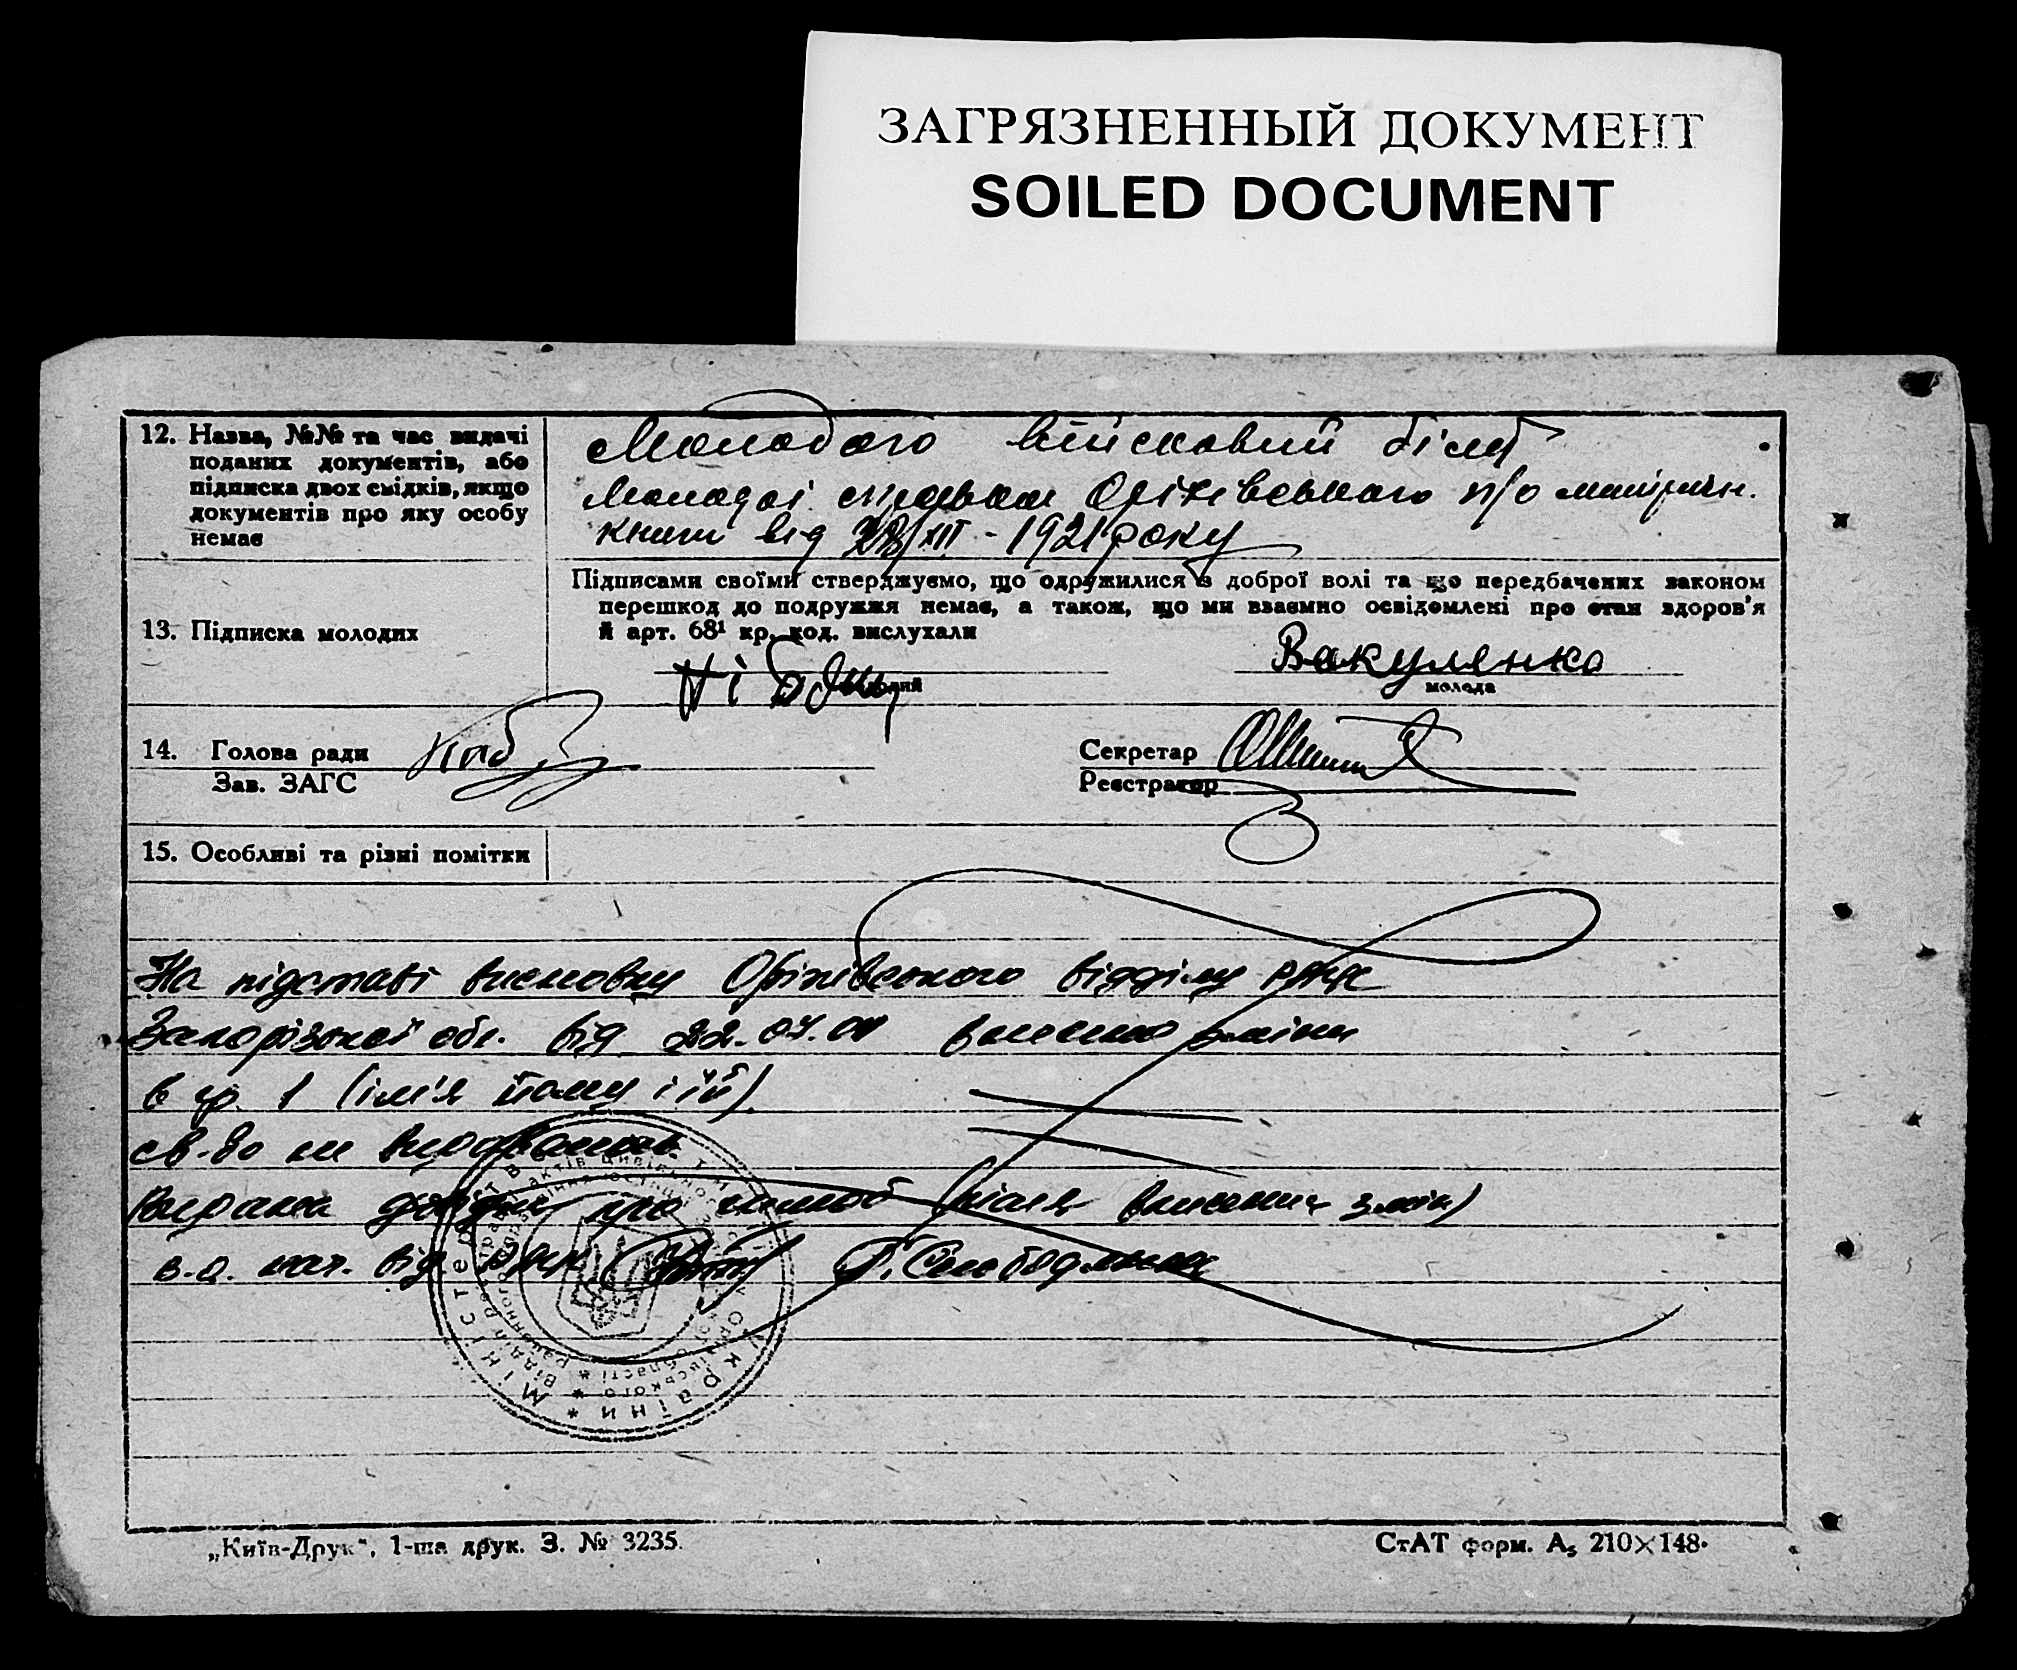 ЗАГРЯЗНЕННЫЙ ДОКУМЕНТ
SOILED DOCUMENT
12. Назва, №№ та час видачі
поданих документів, або
підписка двох свідків, якщо
документів про яку особу
немає
Молодого військовий білет
Молодої Оріхівського п/о
книги від 28/XII - 1921 року
13. Підписка молодих
Підписами своїми стверджуємо, що одружилися з доброї волі та що передбачених законом
перешкод до подружжя немає, а також, що ми взаємно освідомлені про стан здоров'я
й арт. 68¹ кр. код. вислухали
Вакуленко
молода
14. Голова ради
Зав. ЗАГС
Секретар
Реєстратор
15. Особливі та різні помітки
На підставі висновку Оріхівського відділу РАЦС
Запорізької обл. від 22.07.01 внесено зміни
в гр. 1 (ім'я йому і їй)
св-во не
Видана довідка про шлюб (після внесення змін)
в.о. нач. від. РАЦС
Міністерство юстиції України
„Київ-Друк", 1-ша друк. З. № 3235.
СтАТ форм. А₅ 210×148.